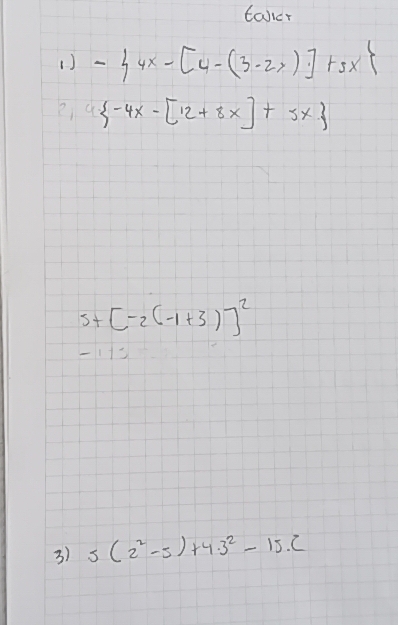 taller
1) - { 4x - [4 - (3-2x)] + 5x }
2, 4{-4x - [12 + 8x] + 5x}
5 + [-2(-1+3)]²
3) 5 (2² - 5) + 4.3² - 15.2